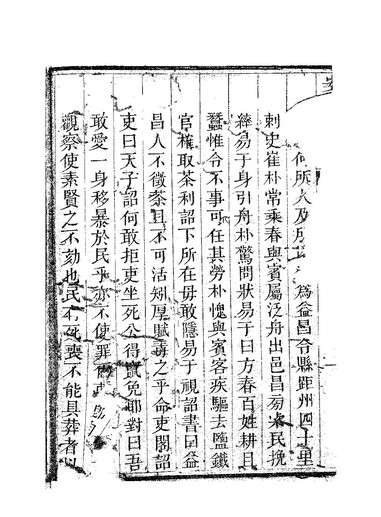 何所人及 爲益昌令縣距州四十里
刺史崔朴常乘春與賓屬泛舟出邑昌旁索民挽
繂易于身引舟朴驚問狀易于曰方春百姓耕且
蠶惟令不事可任其勞朴愧與賓客疾驅去鹽鐵
官榷取茶利詔下所在毋敢隱易于視詔書曰益
昌人不徵茶且不可活矧厚賦毒之乎命吏閣詔
吏曰天子詔何敢拒吏坐死公得竄免耶對曰吾
敢愛一身移暴於民乎亦不使罪
觀察使素賢之不劾也民有死喪不能具葬者以